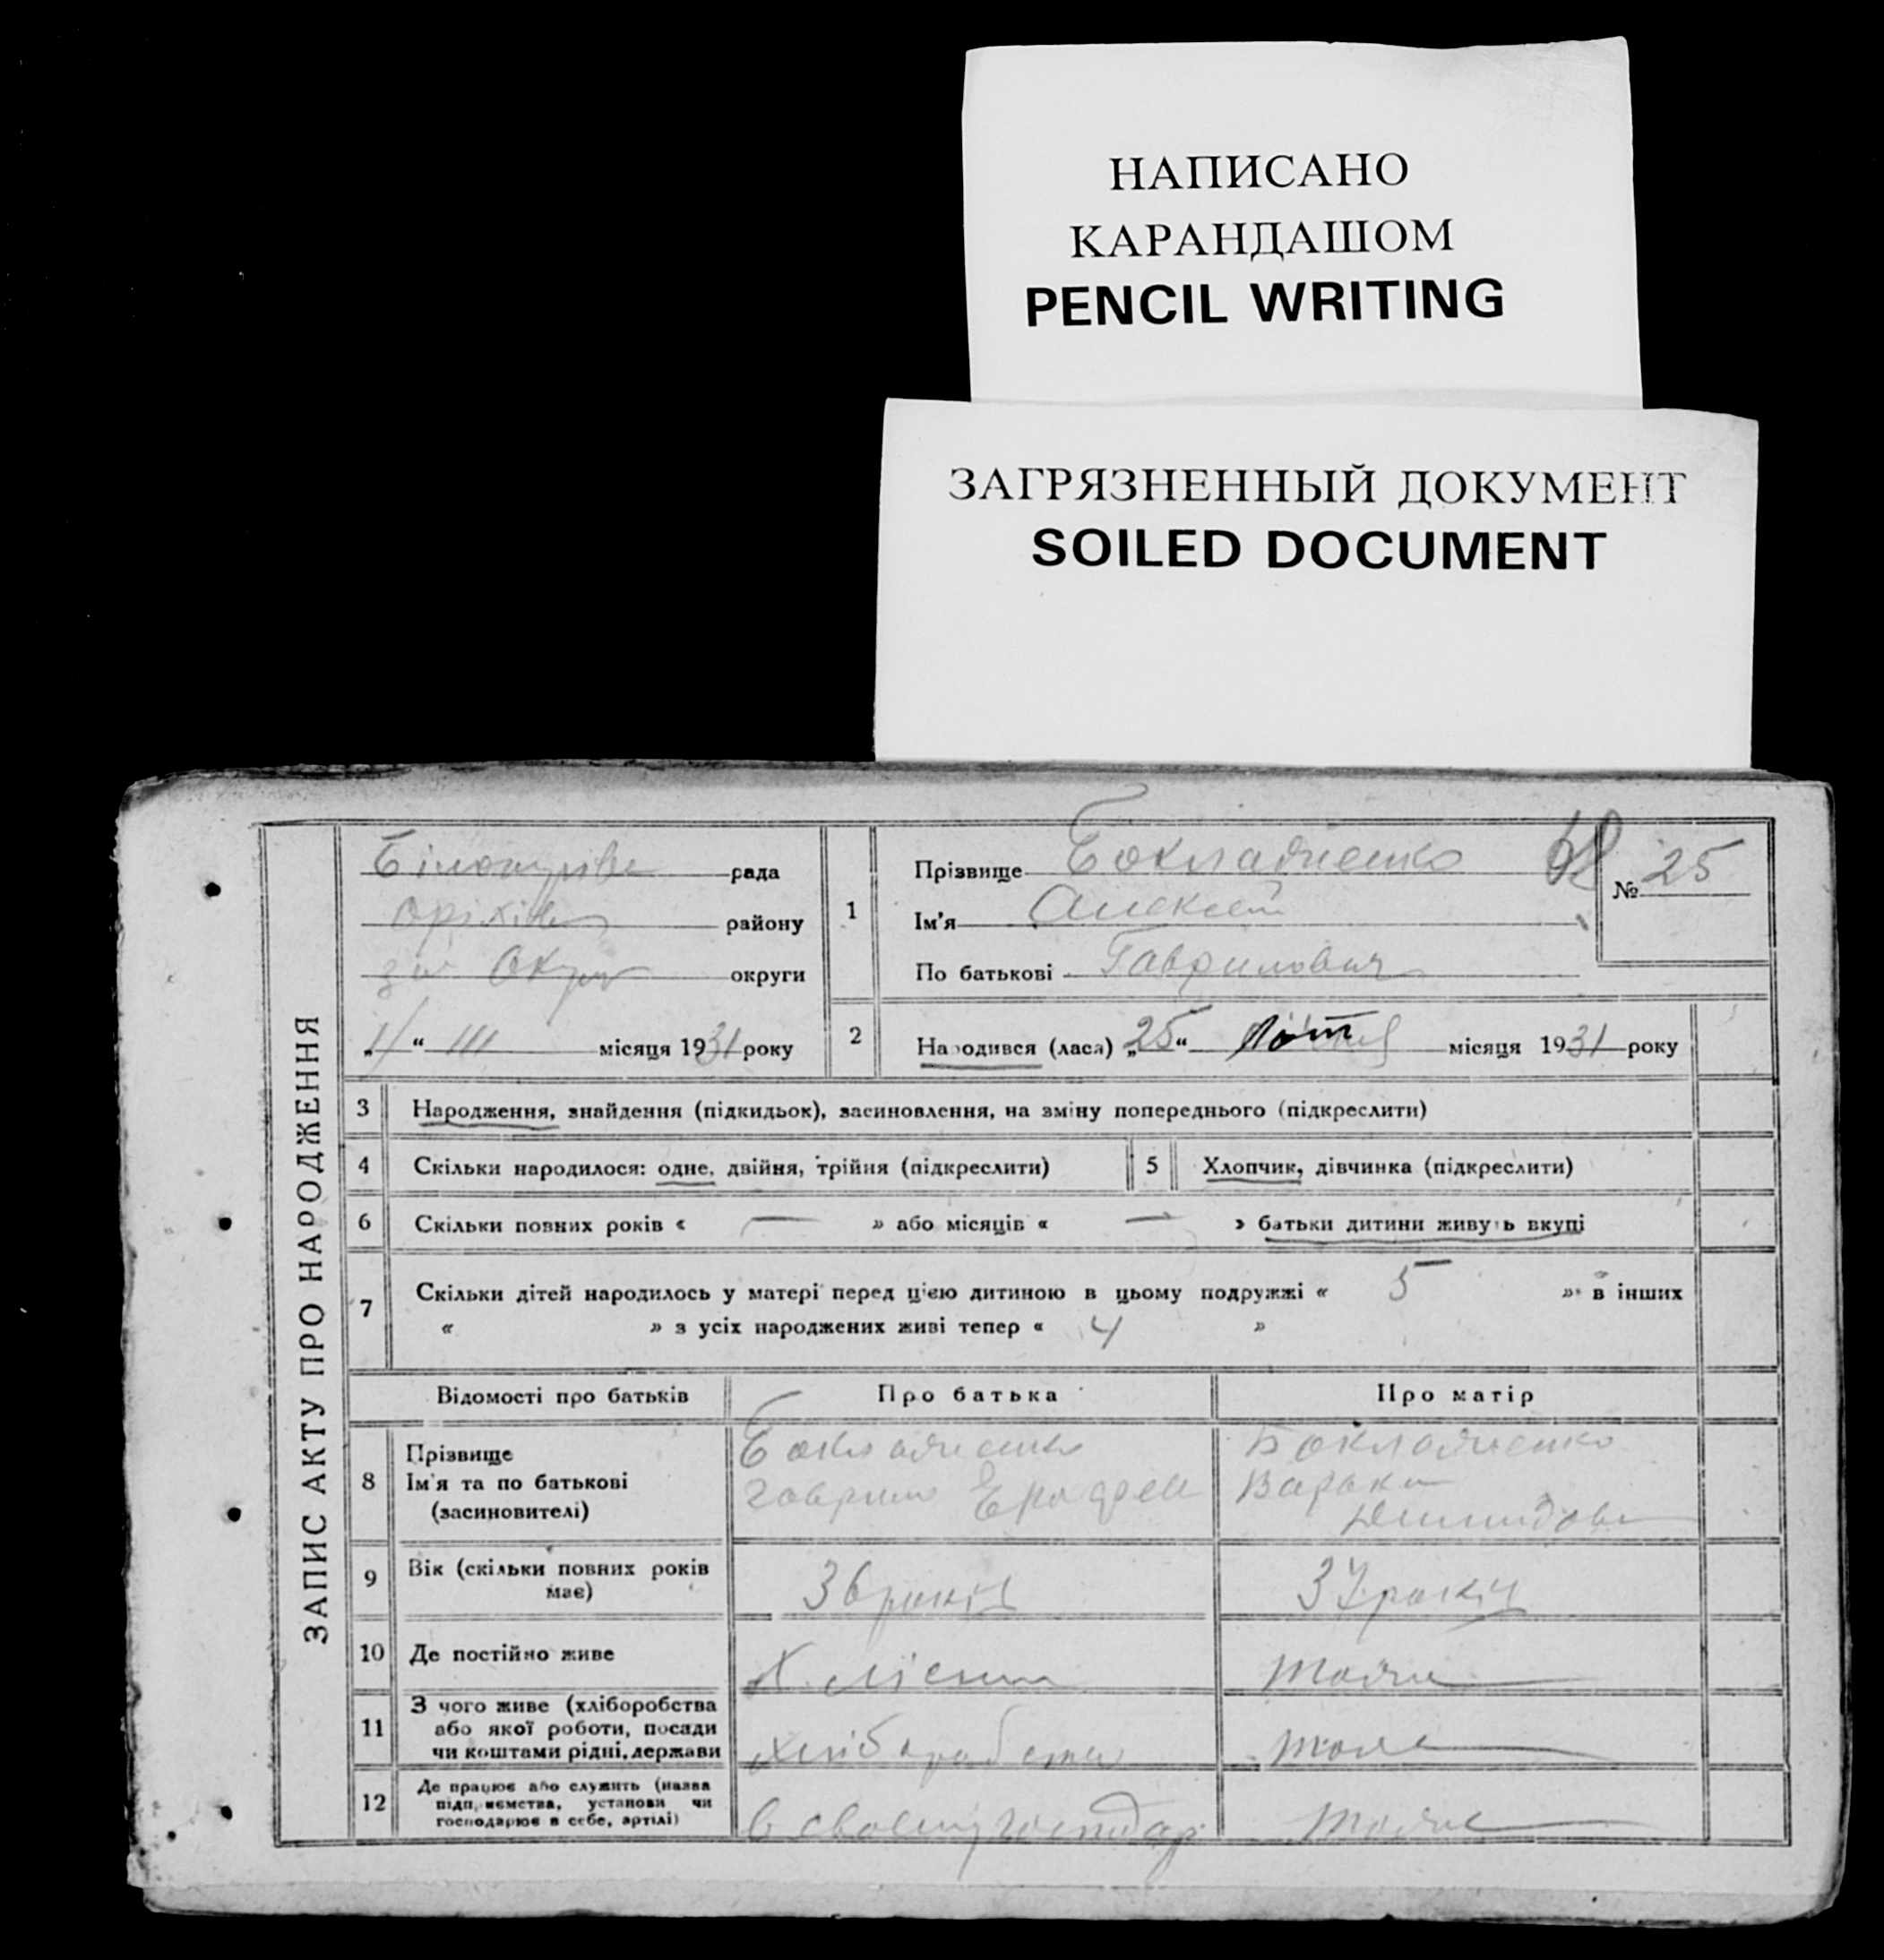 НАПИСАНО
КАРАНДАШОМ
PENCIL WRITING
ЗАГРЯЗНЕННЫЙ ДОКУМЕНТ
SOILED DOCUMENT
ЗАПИС АКТУ ПРО НАРОДЖЕННЯ
рада
району
округи
„ “ III місяця 1931 року
1
Прізвище Бокладченко
Ім'я Алексей
По батькові Гаврилович
№ 25
2
Народився (лася) „25“ місяця 1931 року
3 Народження, знайдення (підкидьок), засиновлення, на зміну попереднього (підкреслити)
4 Скільки народилося: одне, двійня, трійня (підкреслити)
5 Хлопчик, дівчинка (підкреслити)
6 Скільки повних років « — » або місяців « — » батьки дитини живуть вкупі
7 Скільки дітей народилось у матері перед цією дитиною в цьому подружжі « 5 » в інших
« » з усіх народжених живі тепер « 4 »
Відомості про батьків
Про батька
Про матір
8 Прізвище
Ім'я та по батькові
(засиновителі)
Бокладченко
Бокладченко
9 Вік (скільки повних років
має)
36 років
10 Де постійно живе
11 З чого живе (хліборобства
або якої роботи, посади
чи коштами рідні, держави
12 Де працює або служить (назва
підприємства, установи чи
господарює в себе, артілі)
в своему господар